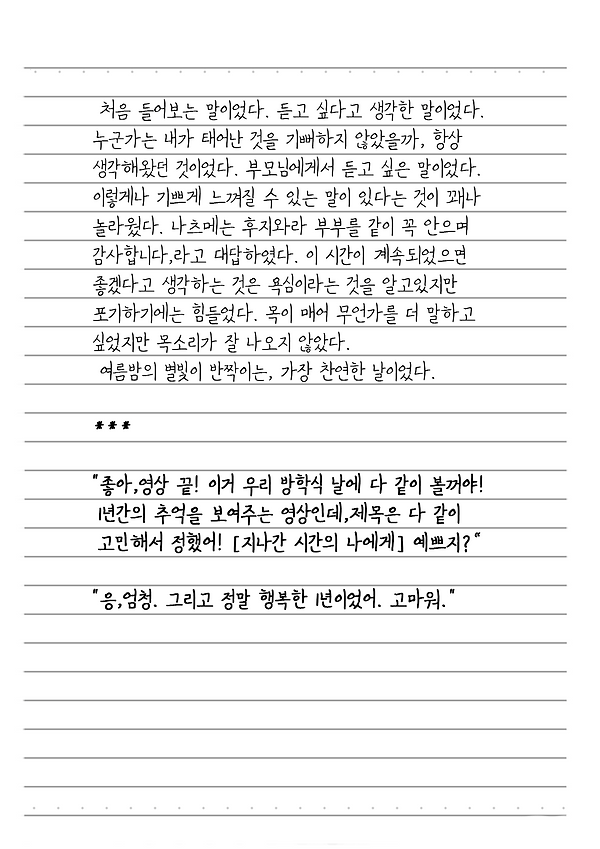 처음 들어보는 말이었다. 듣고 싶다고 생각한 말이었다.
누군가는 내가 태어난 것을 기뻐하지 않았을까, 항상
생각해왔던 것이었다. 부모님에게서 듣고 싶은 말이었다.
이렇게나 기쁘게 느껴질 수 있는 말이 있다는 것이 꽤나
놀라웠다. 나츠메는 후지와라 부부를 같이 꼭 안으며
감사합니다,라고 대답하였다. 이 시간이 계속되었으면
좋겠다고 생각하는 것은 욕심이라는 것을 알고있지만
포기하기에는 힘들었다. 목이 매여 무언가를 더 말하고
싶었지만 목소리가 잘 나오지 않았다.
여름밤의 별빛이 반짝이는, 가장 찬연한 날이었다.
***
"좋아,영상 끝! 이거 우리 방학식 날에 다 같이 볼꺼야!
1년간의 추억을 보여주는 영상인데,제목은 다 같이
고민해서 정했어! [지나간 시간의 나에게] 예쁘지?"
"응,엄청. 그리고 정말 행복한 1년이었어. 고마워."